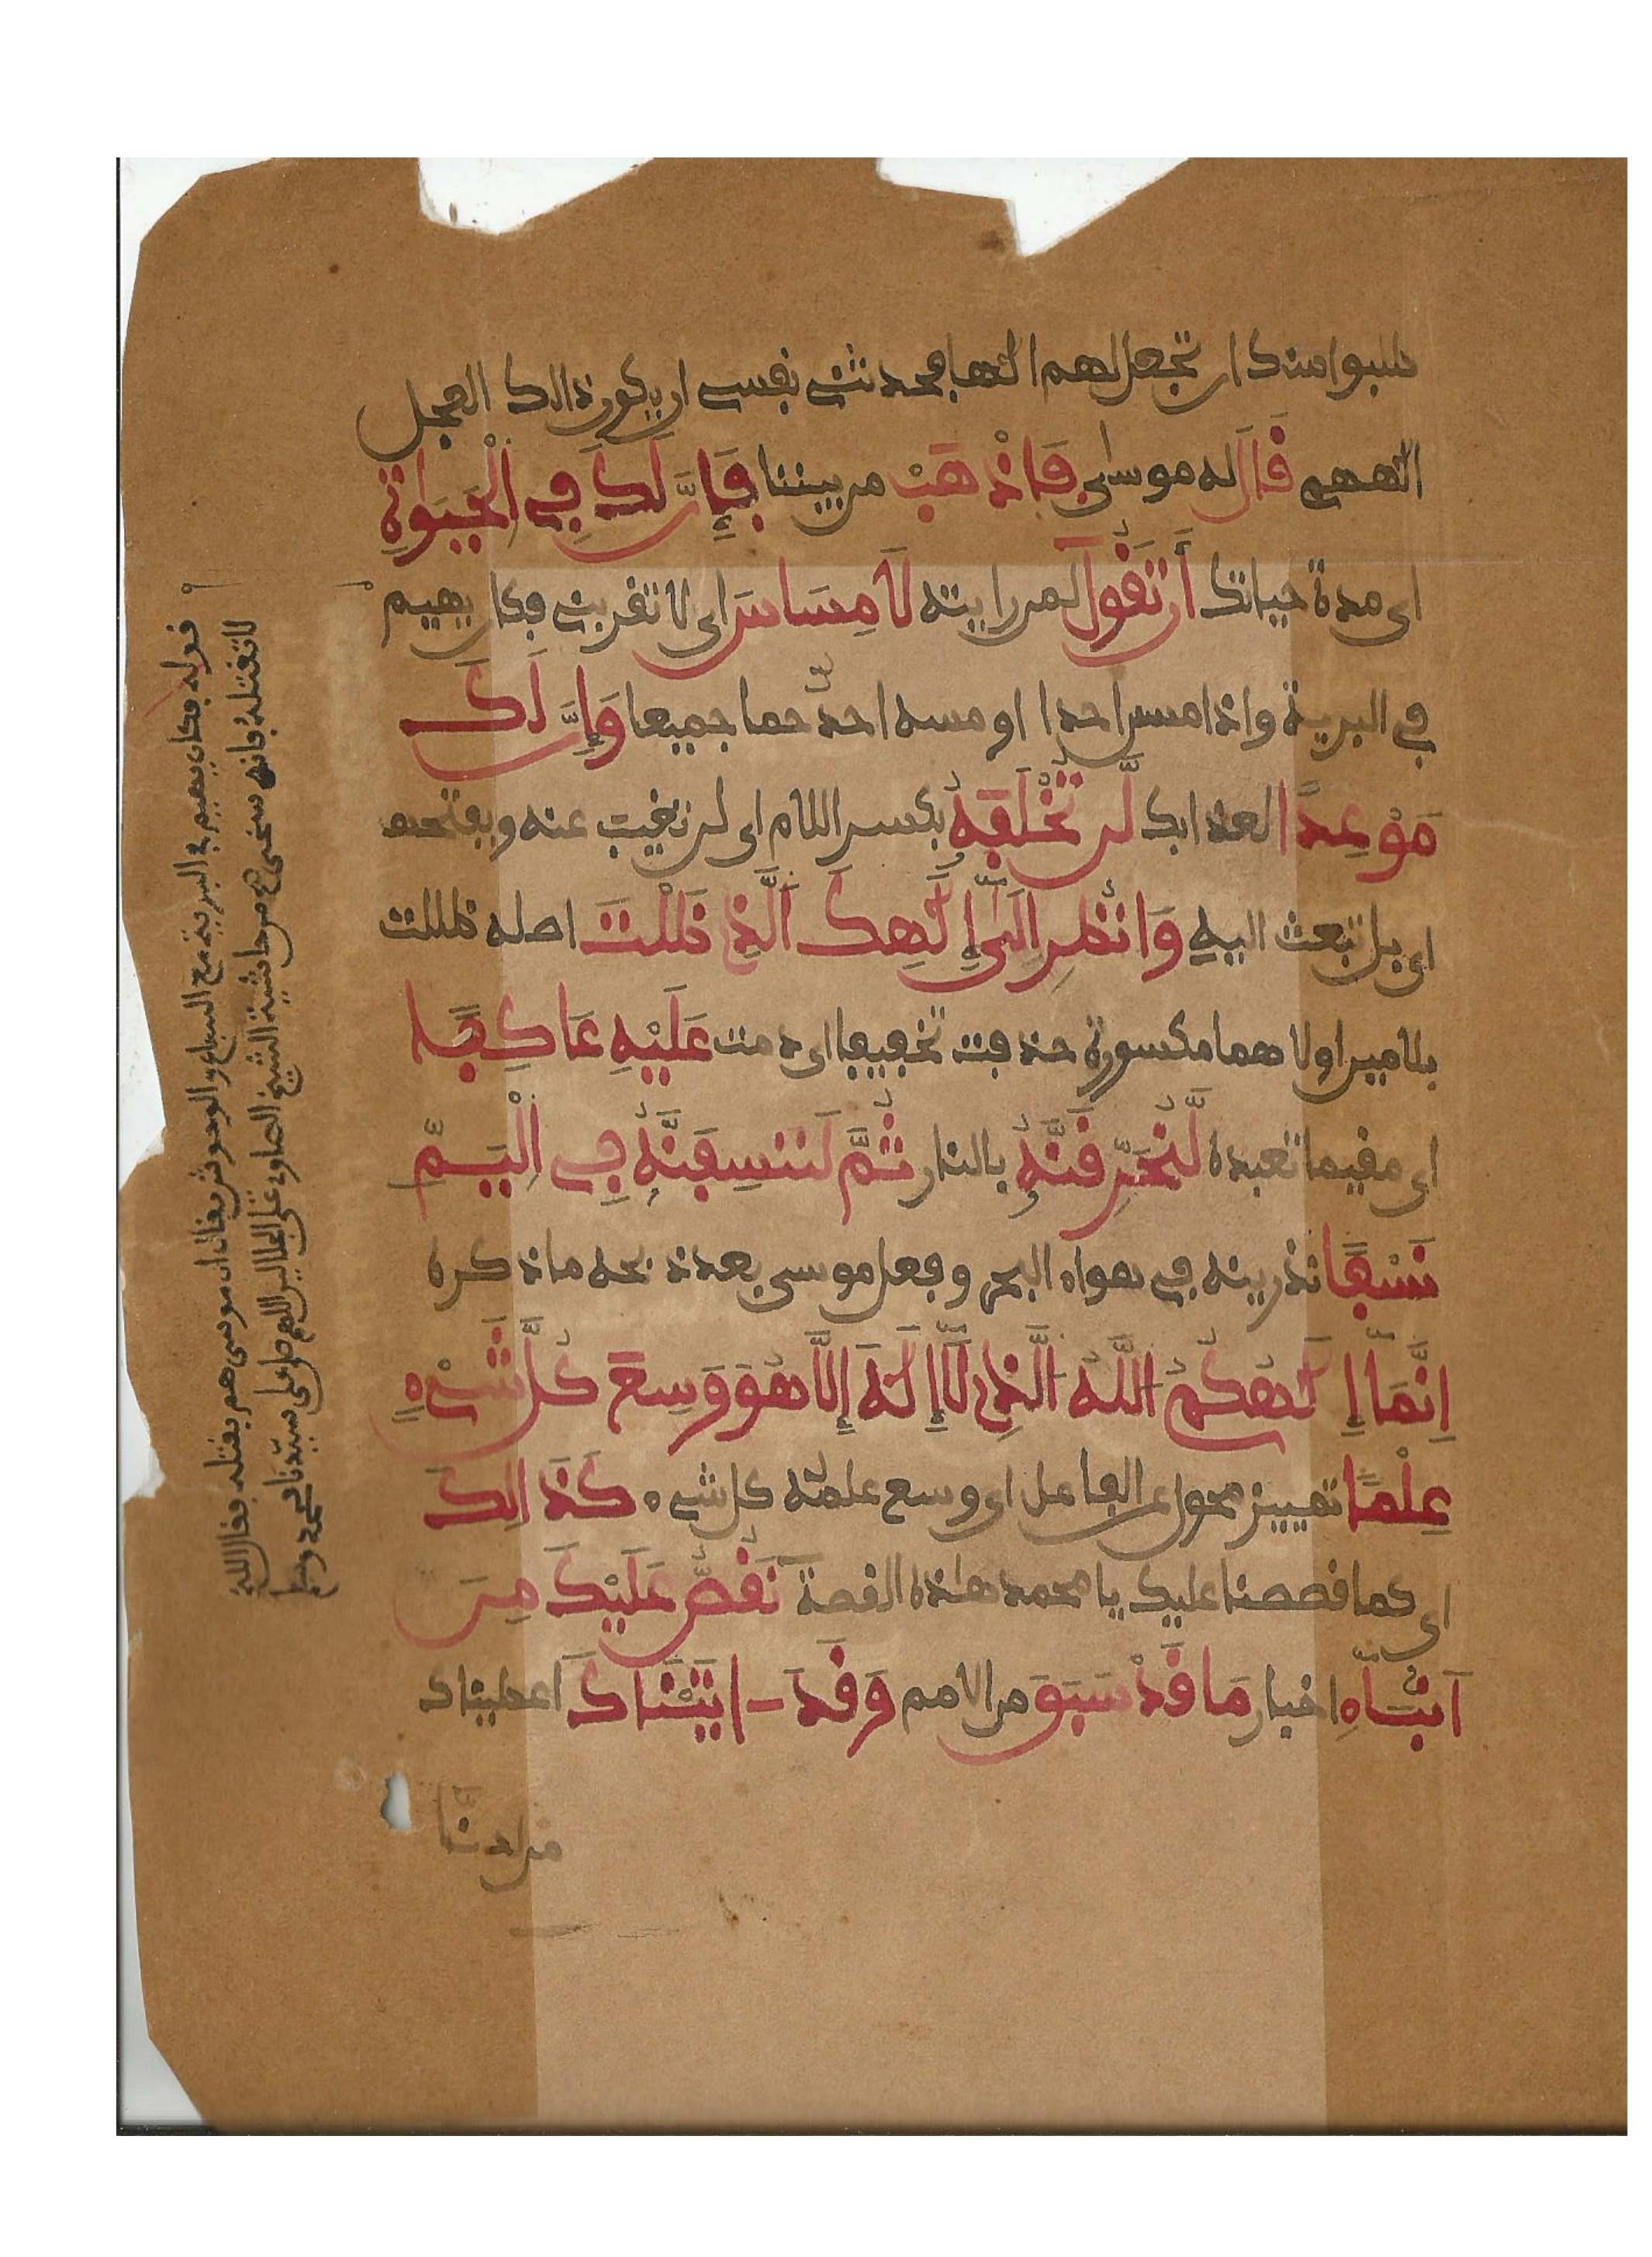 طلبوا منك ان تجعل لهم الٰها فحدثتنے نفسے ان يكون ذالك العجل
الٰههم قَالَ له موسىٰ فَاذْهَبْ من بيننا فَإِنَّ لَكَ فِے الْحَيَوٰةِ
اى مدة حياتك أَن تَقُولَ لمن رايته لَا مِسَاسَ اى لا تقربنے فكان يهيم
فے البرية واذا مس احدا او مسه احدٌ حما جميعا وَإِنَّ لَكَ
مَوْعِداً لعذابك لَّن تُخْلَفَهُۥ بكسر اللام اى لن تغيب عنه وبفتحها
اى بل تبعث اليه وَانظُرِ اِلَىٰٓ إِلَٰهِكَ اَلَّذِے ظَلْتَ اصله ظللت
بلامين اولاهما مكسورة حذفت تخفيفا اى دمت عَلَيْهِ عَاكِفاً
اى مقيما تعبده لَّنُحَرِّقَنَّهُۥ بالنار ثُمَّ لَنَنسِفَنَّهُۥ فِے اِلْيَمِّ
نَسْفاً نذرينه فے هواه البحر وفعل موسى بعد ذبحه ما ذكره
اِنَّمَآ إِلَٰهُكُمُ اللَّهُ الَّذِے لَآ إِلَٰهَ إِلَّا هُوَ وَسِعَ كُلَّ شَےْءٍ
عِلْماً تمييز محول عن الفاعل اى وسع علمُه كل شےء كَذَالِكَ
اى كما قصصنا عليك يا محمد هٰذه القصة نَقُصُّ عَلَيْكَ مِنَ
اَنۢبَآءِ اخبار مَا قَدْ سَبَقَ من الامم وَقَدَ ـاتَيْنَٰكَ اعطيناك
من لدنَّا
قوله فكان يهيم فے البرية مع السباع والوحوش يقال ان موسى هم بقتله فقال الله
لا تقتله فإنه سخى ھ من حاشية الشيخ الصاوى على الجلالين اللهم صل على سيدنا محمد وسلم